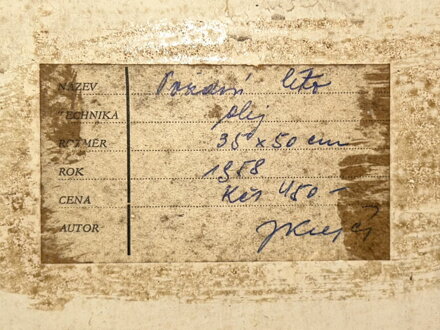 NÁZEV Pozdní léto
TECHNIKA olej
ROZMĚR 35 x 50 cm
ROK 1958
CENA Kčs 450 -
AUTOR